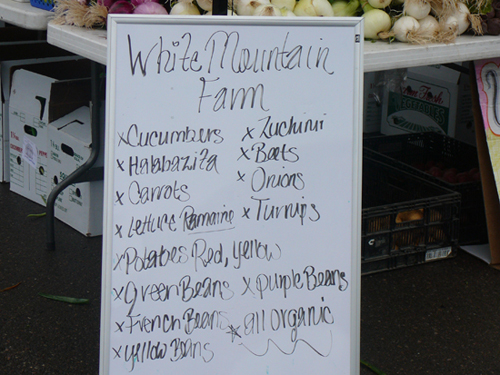 White Mountain
Farm
x Cucumbers
x Halabazita
x Carrots
x Lettuce Romaine
x Potatoes Red, yellow
x Green Beans
x French Beans
x yellow Beans
x Zuchini
x Beets
x Onions
x Turnips
x purple Beans
* all organic